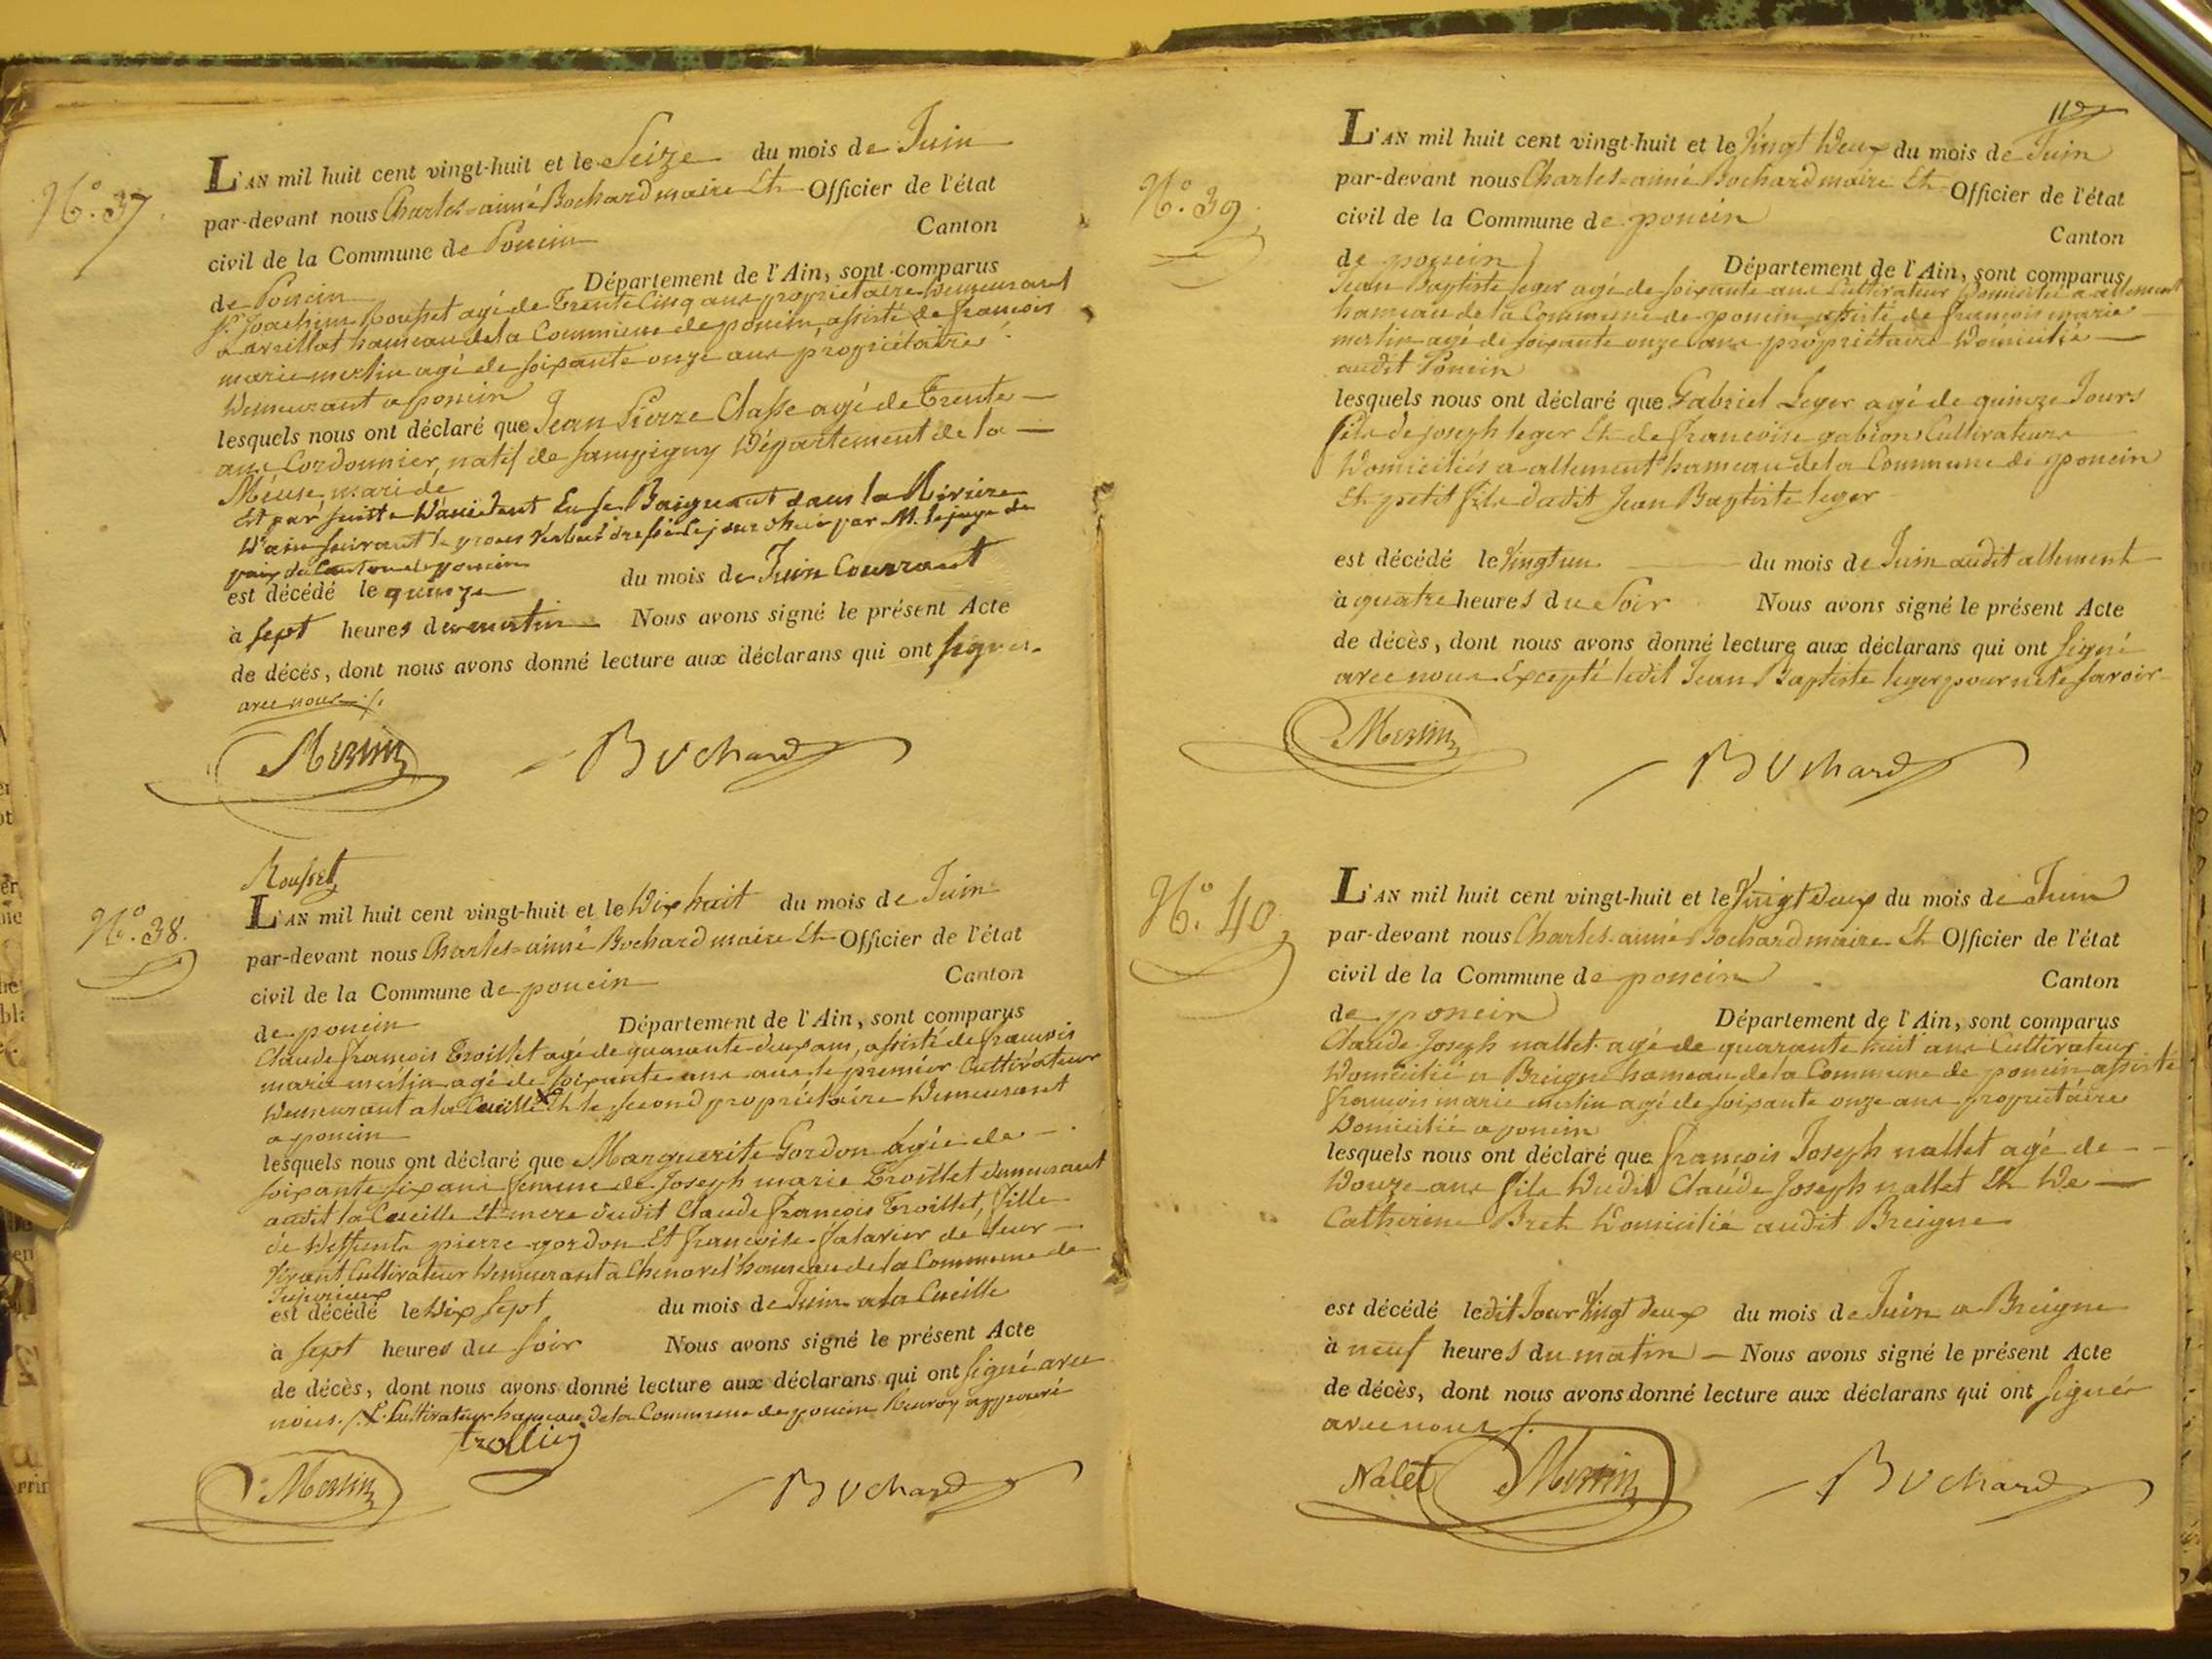 N.o 37.
L'AN mil huit cent vingt-huit et le Seize du mois de Juin
par-devant nous Charles=aimé Bochard maire Et Officier de l'état
civil de la Commune de Poncin Canton
de Poncin Département de l'Ain, sont comparus
Sr. Joachim Rousset agé de Trente Cinq ans propriétaire Demeurant
a avrillat hameau de la Commune de poncin, assisté de françois
marie merlin agé de soixante onze ans propriétaire
Demeurant a poncin
lesquels nous ont déclaré que Jean Pierre Classe agé de Trente
ans Cordonnier, natif de Sampigny Département de la
Meuse, mari de
Est par suitte D'accident En se Baignant dans la Rivière
D'ain suivant le procès verbal dressé le jour d'hier par M. le juge de
paix du Canton de poncin
est décédé le quinze du mois de Juin Courrant
à Sept heures du matin Nous avons signé le présent Acte
de décés, dont nous avons donné lecture aux déclarans qui ont signés
avec nous ./.
Merlin Bochard
Rousset
N.o 38.
L'AN mil huit cent vingt-huit et le Dix huit du mois de Juin
par-devant nous Charles=aimé Bochard maire Et Officier de l'état
civil de la Commune de poncin Canton
de poncin Département de l'Ain, sont comparus
Claude françois Troillet agé de quarante-deux ans, assisté de françois
marie merlin agé de soixante onze ans le premier Cultivateur
Demeurant a la Cueille X Et le second propriétaire Demeurant
a poncin
lesquels nous ont déclaré que Marguerite Gordon agée de
soixante six ans femme de Joseph marie Troillet demeurant
audit la Cueille Et mere dudit Claude françois Troillet, fille
de Deffunts pierre gordon Et françoise Salavier de leur
Vivant Cultivateur Demeurant a Chenavel hameau de la Commune de
Jujurieux
est décédé le Dix Sept du mois de Juin a la Cueille
à Sept heures du Soir Nous avons signé le présent Acte
de décès, dont nous avons donné lecture aux déclarans qui ont signé avec
nous ./. X. Cultivateur hameau de la Commune de poncin Renvoy approuvé
trolliet
Merlin Bochard
112
N.o 39.
L'AN mil huit cent vingt-huit et le Vingt Deux du mois de Juin
par-devant nous Charles=aimé Bochard maire Et Officier de l'état
civil de la Commune de poncin Canton
de poncin Département de l'Ain, sont comparus
Jean Baptiste leger agé de soixante ans Cultivateur Domicilié a allement
hameau de la Commune de poncin assisté de françois marie
merlin agé de soixante onze ans propriétaire Domicilié
audit Poncin
lesquels nous ont déclaré que Gabriel Leger agé de quinze Jours
fils de joseph leger Et de françoise gabion Cultivateurs
Domiciliés a allement hameau de la Commune de poncin
Et petit fils dudit Jean Baptiste leger
est décédé le Vingt un du mois de Juin audit allement
à quatre heures du Soir Nous avons signé le présent Acte
de décès, dont nous avons donné lecture aux déclarans qui ont signé
avec nous Excepté ledit Jean Baptiste leger pour ne le savoir
Merlin Bochard
N.o 40.
L'AN mil huit cent vingt-huit et le Vingt deux du mois de Juin
par-devant nous Charles-aimé Bochard maire Et Officier de l'état
civil de la Commune de poncin Canton
de poncin Département de l'Ain, sont comparus
Claude Joseph nallet agé de quarante huit ans Cultivateur
Domicilié a Breigne hameau de la Commune de poncin assisté
françois marie merlin agé de soixante onze ans propriétaire
Domicilié a poncin
lesquels nous ont déclaré que françois Joseph nallet agé de
Douze ans fils Dudit Claude Joseph nallet Et De
Catherine Bret Domicilié audit Breigne
est décédé ledit Jour Vingt deux du mois de Juin a Breigne
à neuf heures du matin Nous avons signé le présent Acte
de décès, dont nous avons donné lecture aux déclarans qui ont signés
avec nous ./.
Nalet Merlin Bochard